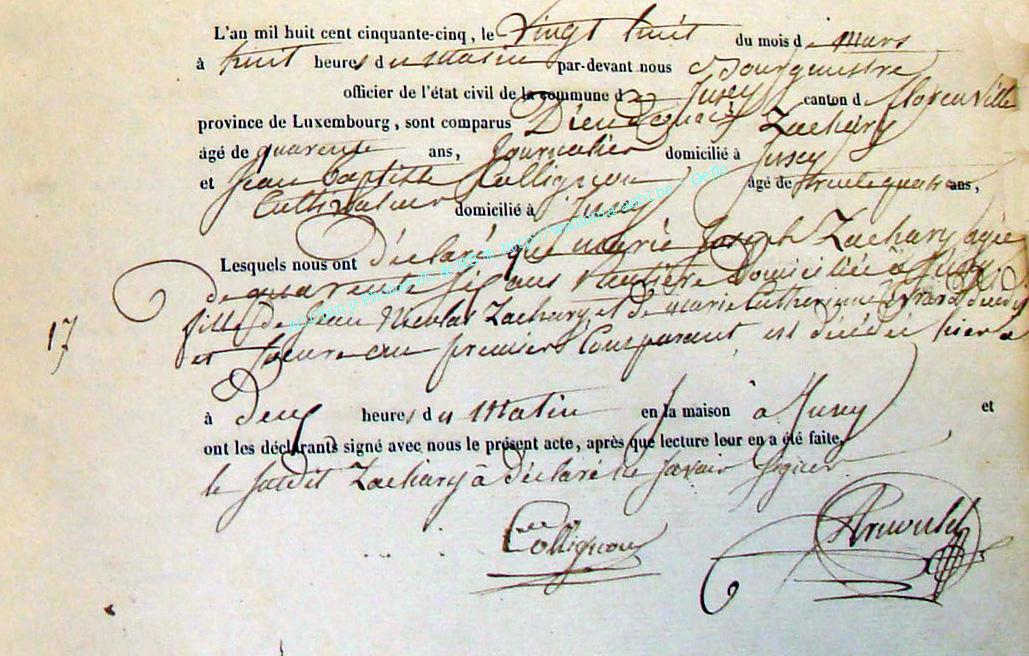 L'an mil huit cent cinquante-cinq, le Vingt huit du mois de Mars
à huit heures du Matin par-devant nous Bourgmestre
officier de l'état civil de la commune de Jusey canton de florenville
province de Luxembourg, sont comparus Dieudonné Zachary
âgé de quarente ans, Journalier domicilié à Jusey
et Jean Baptiste Collignon âgé de trente quatre ans,
Cultivateur domicilié à Jusey
Lesquels nous ont déclaré que marie Joseph Zachary agée
de quarente six ans Rentière Domiciliée à Jusey
fille de Jean Nicolas Zachary et de marie Catherine Evrard
17
et soeure au premier Comparant, est décédée hier
à Deux heures du Matin en la maison à Jusey et
ont les déclarants signé avec nous le présent acte, après que lecture leur en a été faite,
le susdit Zachary à déclaré ne savoir signer
Collignon